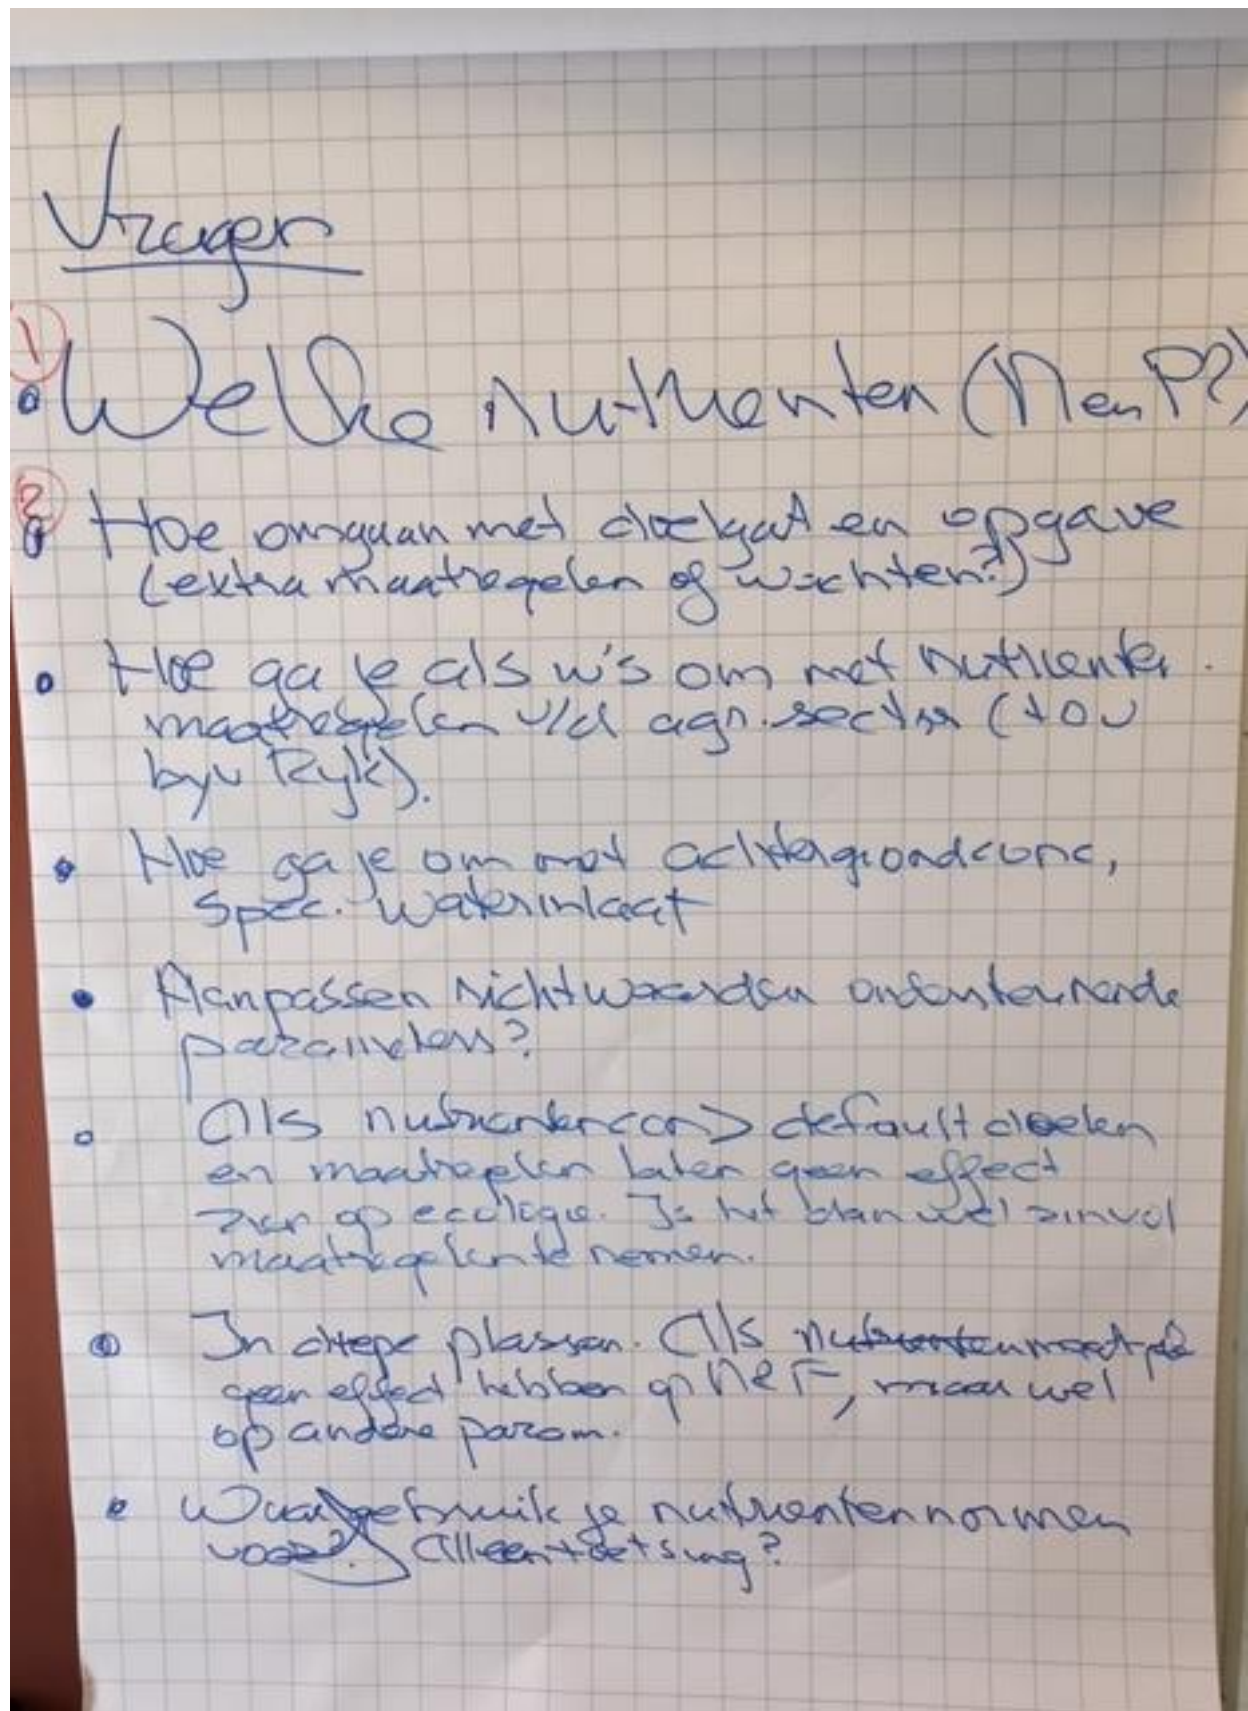 Vragen
1
• Welke nutrienten (N en P?)
2
• Hoe omgaan met doelgat en opgave
(extra maatregelen of wachten?)
• Hoe ga je als w's om met nutrienten
maatregelen v/d agr. sector (tov
bijv Rijk).
• Hoe ga je om met achtergrondconc,
spec. waterinlaat
• Aanpassen richtwaarden ondersteunende
parameters?
• Als nutrienten con > default doelen
en maatregelen laten geen effect
zien op ecologie. Is het dan wel zinvol
maatregelen te nemen.
• In diepe plassen. Als
geen effect hebben op , maar wel
op andere param.
• Waar gebruik je nutrienten normen
voor? Alleen toetsing?